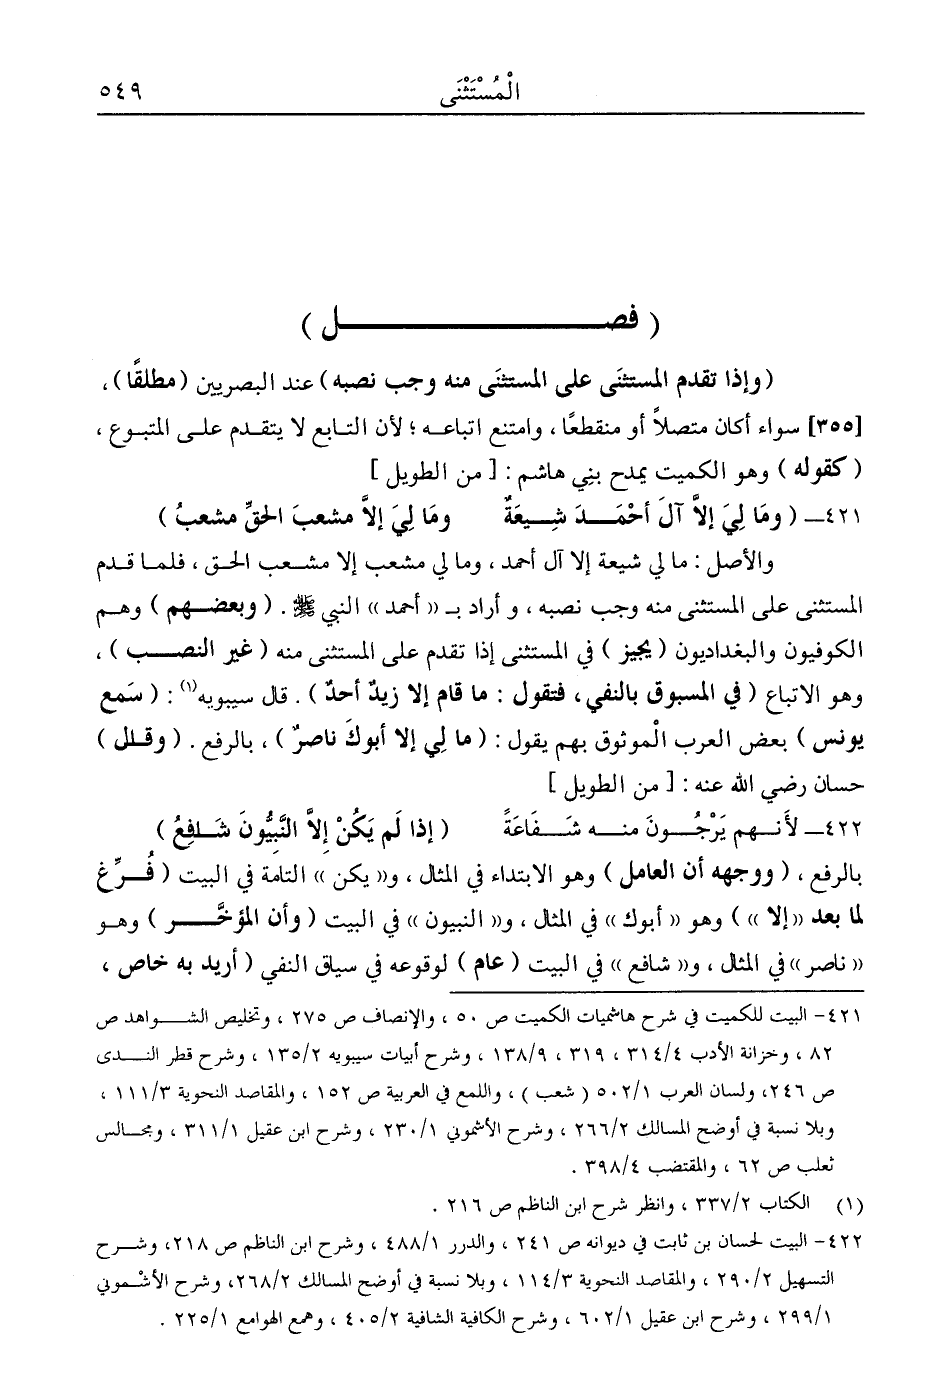 الْمُسْتَثْنَى ٥٤٩
( فصــــــــــــل )
(وإذا تقدم المستثنَى على المستثنَى منه وجب نصبه) عند البصريين (مطلقًا) ،
[٣٥٥] سواء أكان متصلاً أو منقطعًا ، وامتنع اتباعه ؛ لأن التابع لا يتقدم على المتبوع ،
( كقوله ) وهو الكميت يمدح بنِي هاشم : [ من الطويل ]
٤٢١ـ ( ومَا لِيَ إلاَّ آلَ أحْمَـدَ شِـيعَةٌ ومَا لِيَ إلاَّ مشعبَ الحقِّ مشعبُ )
والأصل : ما لي شيعة إلا آل أحمد ، وما لي مشعب إلا مشعب الحق ، فلما قدم
المستثنى على المستثنى منه وجب نصبه ، و أراد بـ « أحمد » النبي ﷺ . ( وبعضهم ) وهم
الكوفيون والبغداديون ( يجيز ) في المستثنى إذا تقدم على المستثنى منه ( غير النصب ) ،
وهو الاتباع ( في المسبوق بالنفي ، فتقول : ما قام إلا زيدٌ أحدٌ ) . قال سيبويه(١) : ( سَمع
يونس ) بعض العرب الْموثوق بهم يقول : ( ما لِي إلا أبوكَ ناصرٌ ) ، بالرفع . ( وقال )
حسان رضي الله عنه : [ من الطويل ]
٤٢٢ـ لأَنـهم يَرْجُـونَ منـه شَـفَاعَةً ( إذا لَم يَكُنْ إلاَّ النَّبِيُّونَ شَـافِعُ )
بالرفع ، ( ووجهه أن العامل ) وهو الابتداء في المثال ، و« يكن » التامة في البيت ( فُرِّغ
لما بعد « إلا » ) وهو « أبوك » في المثال ، و« النبيون » في البيت ( وأن المؤخَّـر ) وهو
« ناصر » في المثال ، و« شافع » في البيت ( عام ) لوقوعه في سياق النفي ( أريد به خاص ،
٤٢١- البيت للكميت في شرح هاشميات الكميت ص ٥٠ ، والإنصاف ص ٢٧٥ ، وتخليص الشواهد ص
٨٢ ، وخزانة الأدب ٣١٤/٤ ، ٣١٩ ، ١٣٨/٩ ، وشرح أبيات سيبويه ١٣٥/٢ ، وشرح قطر الندى
ص ٢٤٦، ولسان العرب ٥٠٢/١ ( شعب ) ، واللمع في العربية ص ١٥٢ ، والمقاصد النحوية ١١١/٣ ،
وبلا نسبة في أوضح المسالك ٢٦٦/٢ ، وشرح الأشموني ٢٣٠/١ ، وشرح ابن عقيل ٣١١/١ ، ومجالس
ثعلب ص ٦٢ ، والمقتضب ٣٩٨/٤ .
(١) الكتاب ٣٣٧/٢ ، وانظر شرح ابن الناظم ص ٢١٦ .
٤٢٢- البيت لحسان بن ثابت في ديوانه ص ٢٤١ ، والدرر ٤٨٨/١ ، وشرح ابن الناظم ص ٢١٨، وشرح
التسهيل ٢٩٠/٢ ، والمقاصد النحوية ١١٤/٣ ، وبلا نسبة في أوضح المسالك ٢٦٨/٢، وشرح الأشْموني
٢٩٩/١ ، وشرح ابن عقيل ٦٠٢/١ ، وشرح الكافية الشافية ٤٠٥/٢ ، وهمع الهوامع ٢٢٥/١ .